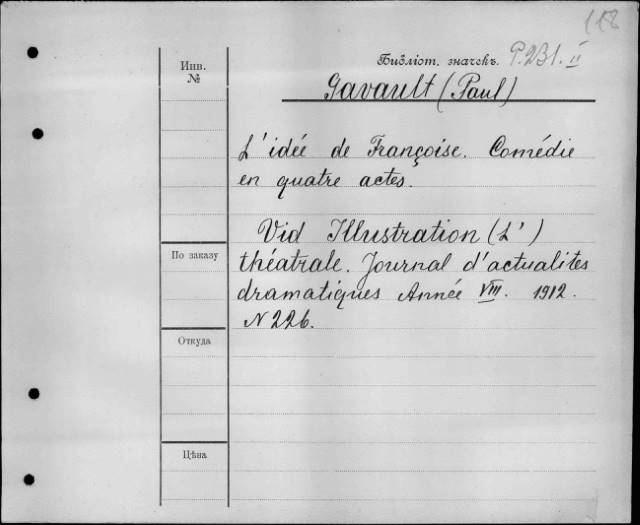 118
Библіот. значекъ. P.231.II
Инв.
№
Gavault (Paul)
L'idée de Françoise. Comédie
en quatre actes.
Vid Illustration (L')
По заказу
théatrale. Journal d'actualités
dramatiques Année VIII. 1912.
N 226.
Откуда
Цѣна